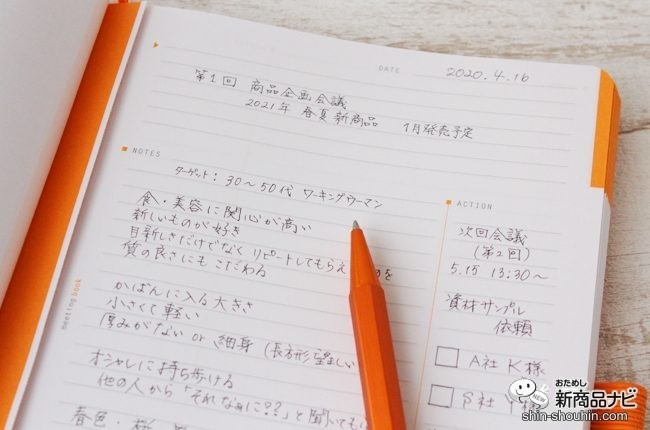 DATE 2020.4.16
第1回 商品企画会議
2021年 春夏新商品 1月発売予定
NOTES
ターゲット:30〜50代 ワーキングウーマン
食・美容に関心が高い
新しいものが好き
目新しさだけでなく リピートしてもらえ を
質の良さにもこだわる
かばんに入る大きさ
小さくて軽い
厚みがない or 細身 (長方形望ましい
オシャレに持ち歩ける
他の人から「それなぁに??」と聞いても
春色・桜
ACTION
次回会議
(第2回)
5.15 13:30〜
資材サンプル
依頼
A社 K様
S社 様
meeting book
おためし
新商品ナビ
shin-shouhin.com